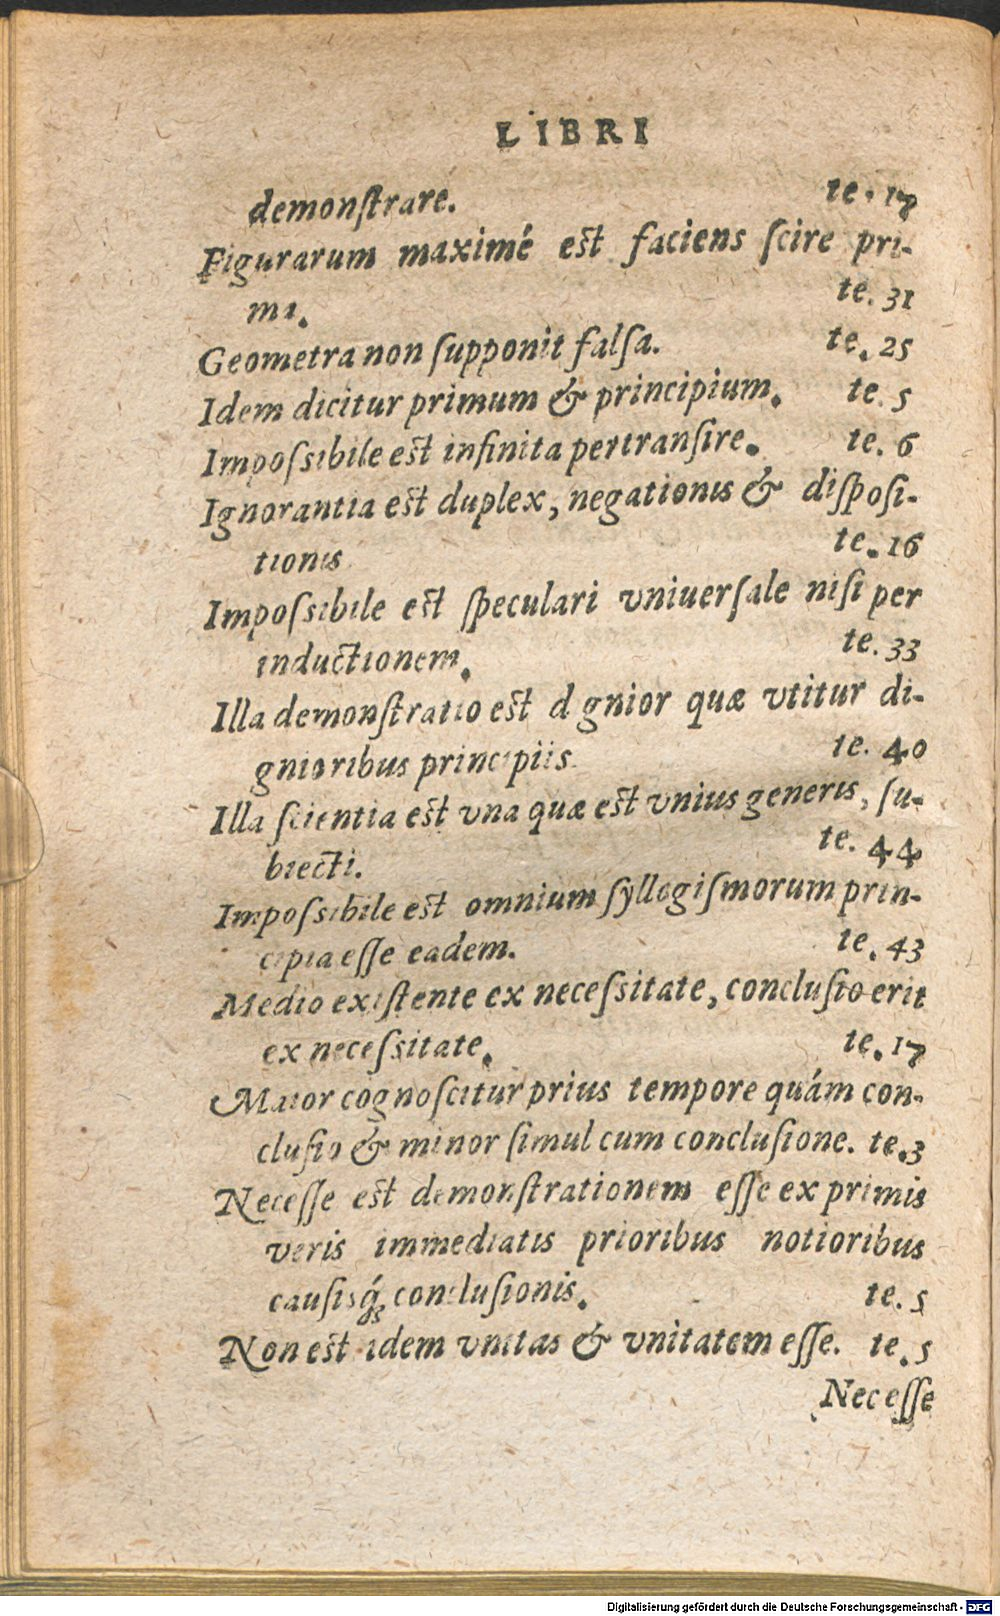 LIBRI
demonſtrare. te. 17
Figurarum maximé eſt faciens ſcire pri-
ma. te. 31
Geometra non ſupponit falſa. te. 25
Idem dicitur primum & principium. te. 5
Impoſsibile eſt infinita pertranſire. te. 6
Ignorantia eſt duplex, negationis & diſpoſi-
tionis te. 16
Impoſsibile eſt ſpeculari vniuerſale niſi per
inductionem. te. 33
Illa demonſtratio eſt dignior quæ vtitur di-
gnioribus principiis. te. 40
Illa ſcientia eſt vna quæ eſt vnius generis, ſu-
biecti. te. 44
Impoſsibile eſt omnium ſyllogiſmorum prin-
cipia eſſe eadem. te. 43
Medio exiſtente ex neceſsitate, concluſio erit
ex neceſsitate. te. 17
Maior cognoſcitur prius tempore quám con-
cluſio & minor ſimul cum concluſione. te. 3
Neceſſe eſt demonſtrationem eſſe ex primis
veris immediatis prioribus notioribus
cauſisq́; concluſionis. te. 5
Non eſt idem vnitas & vnitatem eſſe. te. 5
Neceſſe
Digitalisierung gefördert durch die Deutsche Forschungsgemeinschaft - DFG